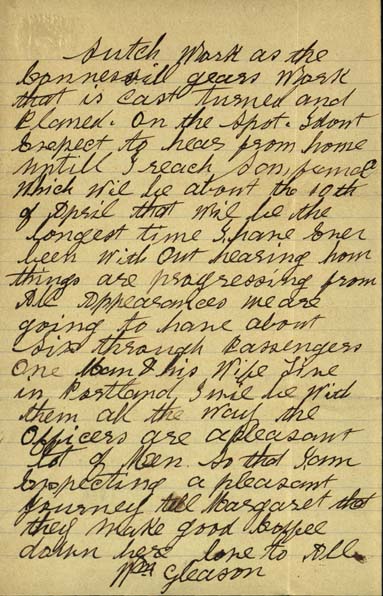 Sutch Work as the
Connessvill gears Work
that is Cast turned and
Planed. On the Spot. I dont
Expect to hear from home
untill I reach San franco
Which will be about the 10th
of April that Will be the
longest time I have Ever
been With Out hearing how
things are progressing from
All Appearances we are
going to have about
Six through Passengers
One Man & his Wife live
in Portland I will be With
them all the way the
Officers are a pleasant
lot of Men. So that I am
Expecting a pleasant
Journey tell Margaret that
they make good Coffee
down here love to All
Wm Gleason